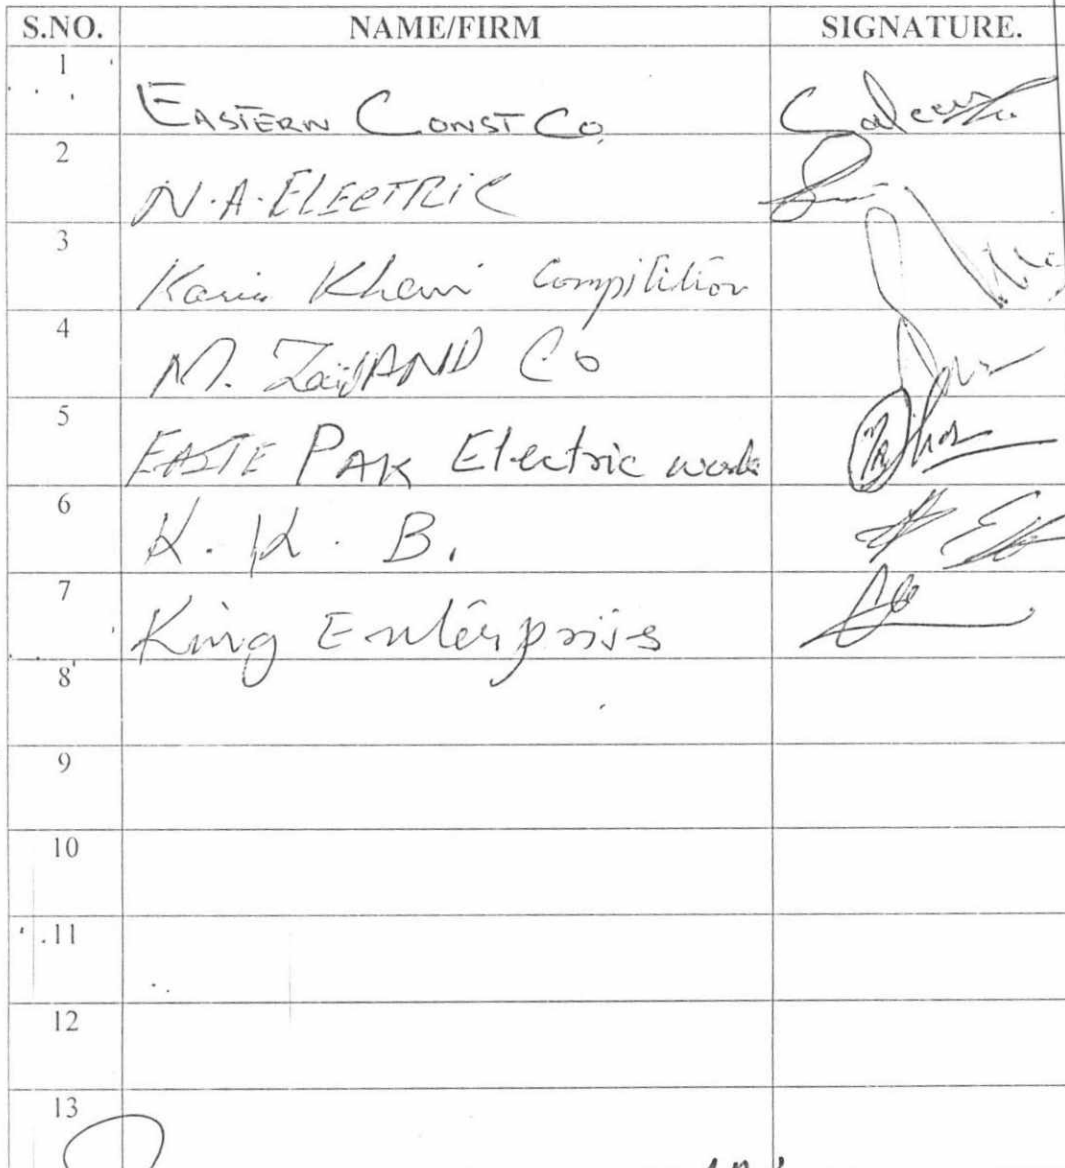 S.NO. NAME/FIRM SIGNATURE.
1 EASTERN CONST CO. Saleem
2 N.A. ELECTRIC
3 Karim Khan Compitition
4 M. Zaid AND Co
5 EASTE PAK Electric works
6 K. K. B.
7 King Enterprises
8
9
10
11
12
13